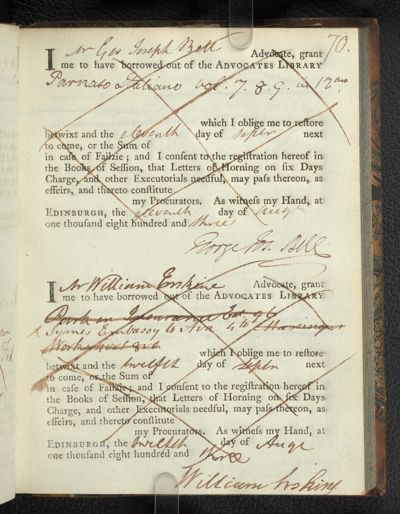 70.
I Mr Geo Joseph Bell Advocate, grant
me to have borrowed out of the ADVOCATES LIBRARY
Parnaso Italiano vol. 7. 8. 9. in 12mo
which I oblige me to restore
betwixt and the eleventh day of Septr next
to come, or the Sum of
in case of Failzie; and I consent to the registration hereof in
the Books of Session, that Letters of Horning on six Days
Charge, and other Executorials needful, may pass thereon, as
effeirs, and thereto constitute
my Procurators. As witness my Hand, at
EDINBURGH, the eleventh day of Augt
one thousand eight hundred and three
George Jos. Bell
I Mr William Erskine Advocate, grant
me to have borrowed out of the ADVOCATES LIBRARY
Symes Embassy to Ava 4to
which I oblige me to restore
betwixt and the twelfth day of Septr next
to come, or the Sum of
in case of Failzie; and I consent to the registration hereof in
the Books of Session, that Letters of Horning on six Days
Charge, and other Executorials needful, may pass thereon, as
effeirs, and thereto constitute
my Procurators. As witness my Hand, at
EDINBURGH, the twelfth day of Augt
one thousand eight hundred and three
William Erskine